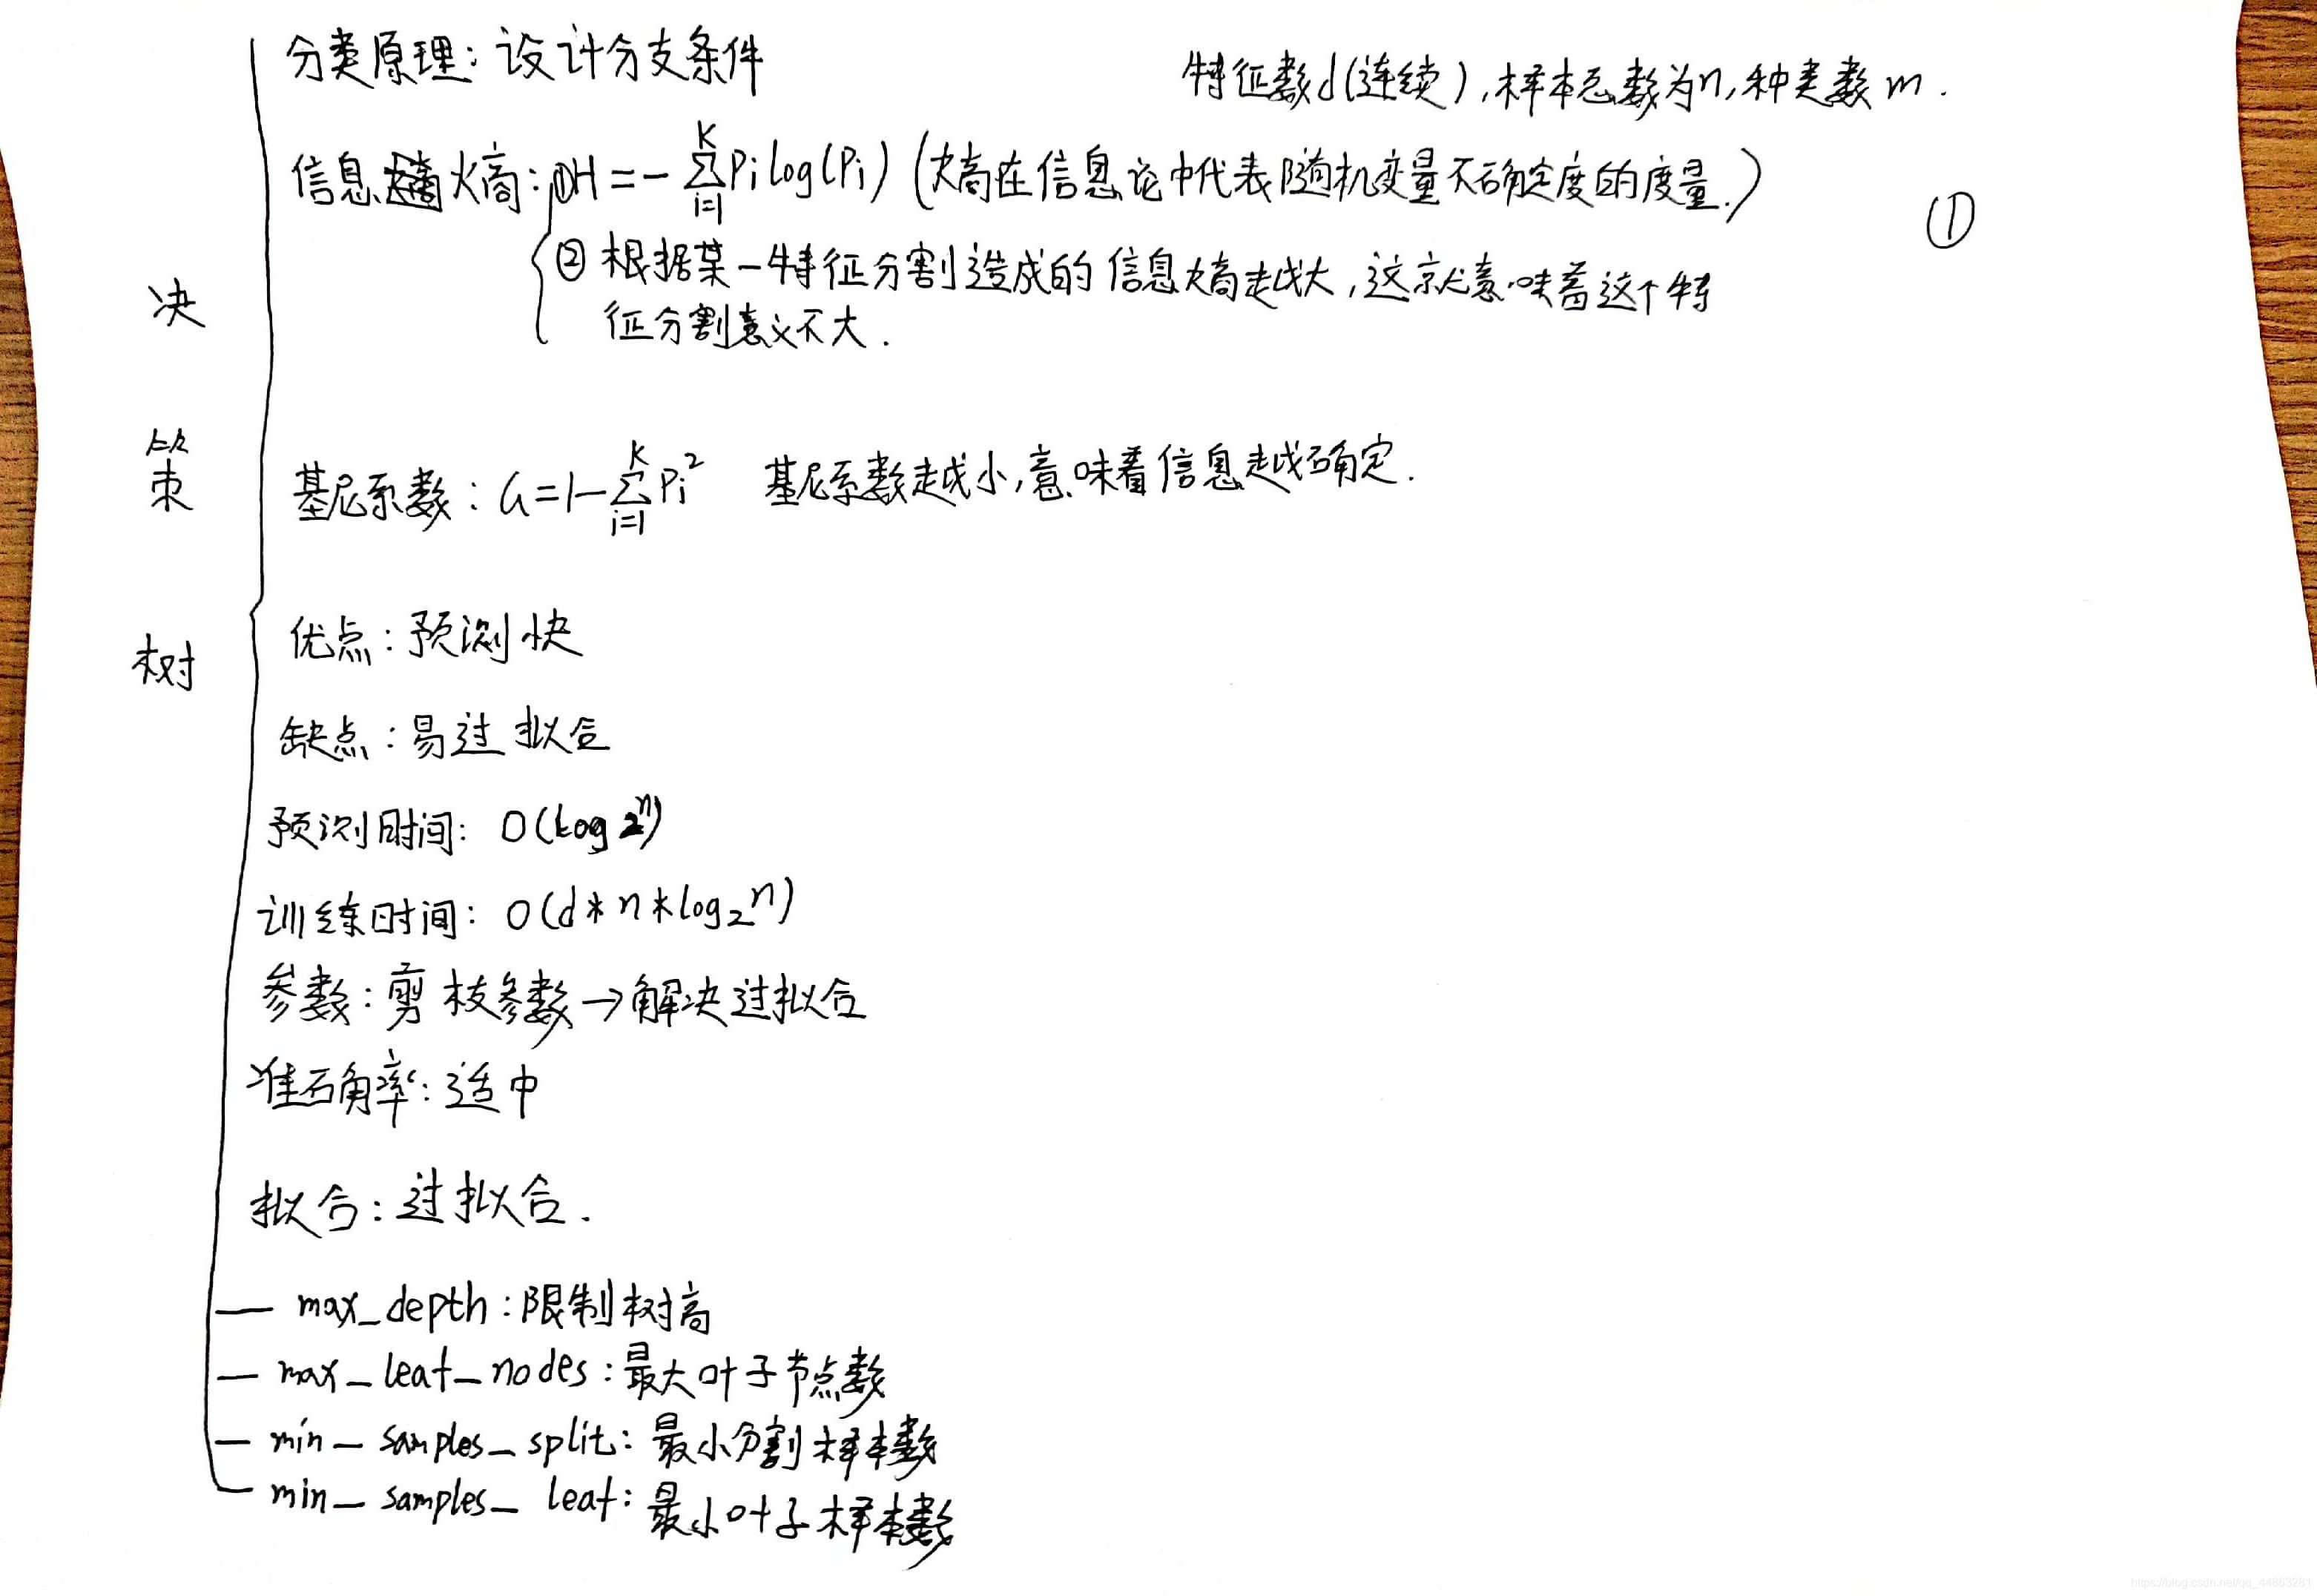 分类原理：设计分支条件
特征数d(连续)，样本总数为n，种类数m.
信息熵：①H=-∑_{i=1}^{K}Pilog(Pi)（熵在信息论中代表随机变量不确定度的度量.）
①
②根据某一特征分割造成的信息熵越大，这就意味着这个特
征分割意义不大.
决
策
树
基尼系数：G=1-∑_{i=1}^{K}Pi² 基尼系数越小，意味着信息越确定.
优点：预测快
缺点：易过拟合
预测时间：O(log₂ⁿ)
训练时间：O(d*n*log₂ⁿ)
参数：剪枝参数→解决过拟合
准确率：适中
拟合：过拟合.
— max_depth：限制树高
— max_leaf_nodes：最大叶子节点数
— min_samples_split：最小分割样本数
— min_samples_leaf：最小叶子样本数
https://blog.csdn.net/qq_44863281